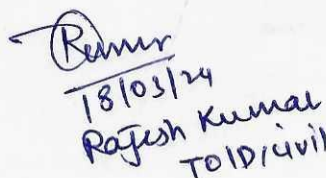 18/03/24
Rajesh Kumar
TO/D/Civil